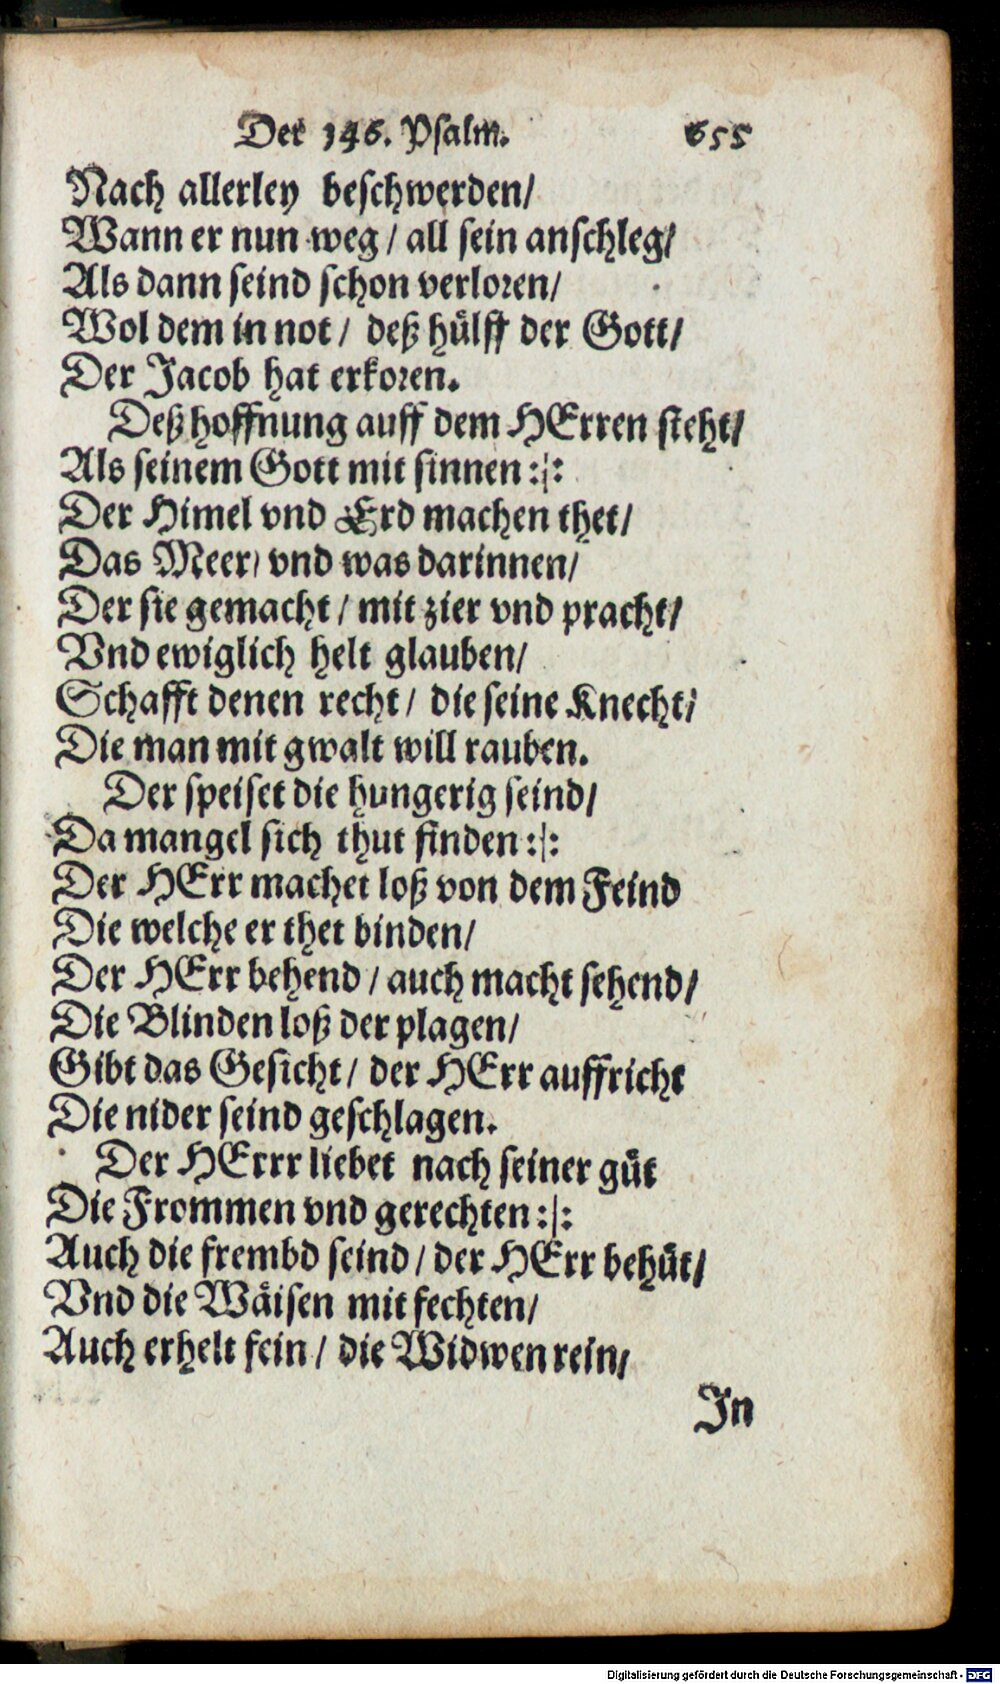 Der 146. Psalm. 655
Nach allerley beschwerden/
Wann er nun weg / all sein anschleg/
Als dann seind schon verloren/
Wol dem in not / deß hülff der Gott/
Der Jacob hat erkoren.
Deß hoffnung auff dem HErren steht/
Als seinem Gott mit sinnen :|:
Der Himel vnd Erd machen thet/
Das Meer/ vnd was darinnen/
Der sie gemacht / mit zier vnd pracht/
Vnd ewiglich helt glauben/
Schafft denen recht / die seine Knecht/
Die man mit gwalt will rauben.
Der speiset die hungerig seind/
Da mangel sich thut finden :|:
Der HErr machet loß von dem Feind
Die welche er thet binden/
Der HErr behend / auch macht sehend/
Die Blinden loß der plagen/
Gibt das Gesicht / der HErr auffricht
Die nider seind geschlagen.
Der HErrr liebet nach seiner güt
Die Frommen vnd gerechten :|:
Auch die frembd seind / der HErr behüt/
Vnd die Wäisen mit fechten/
Auch erhelt fein / die Widwen rein/
In
Digitalisierung gefördert durch die Deutsche Forschungsgemeinschaft - DFG